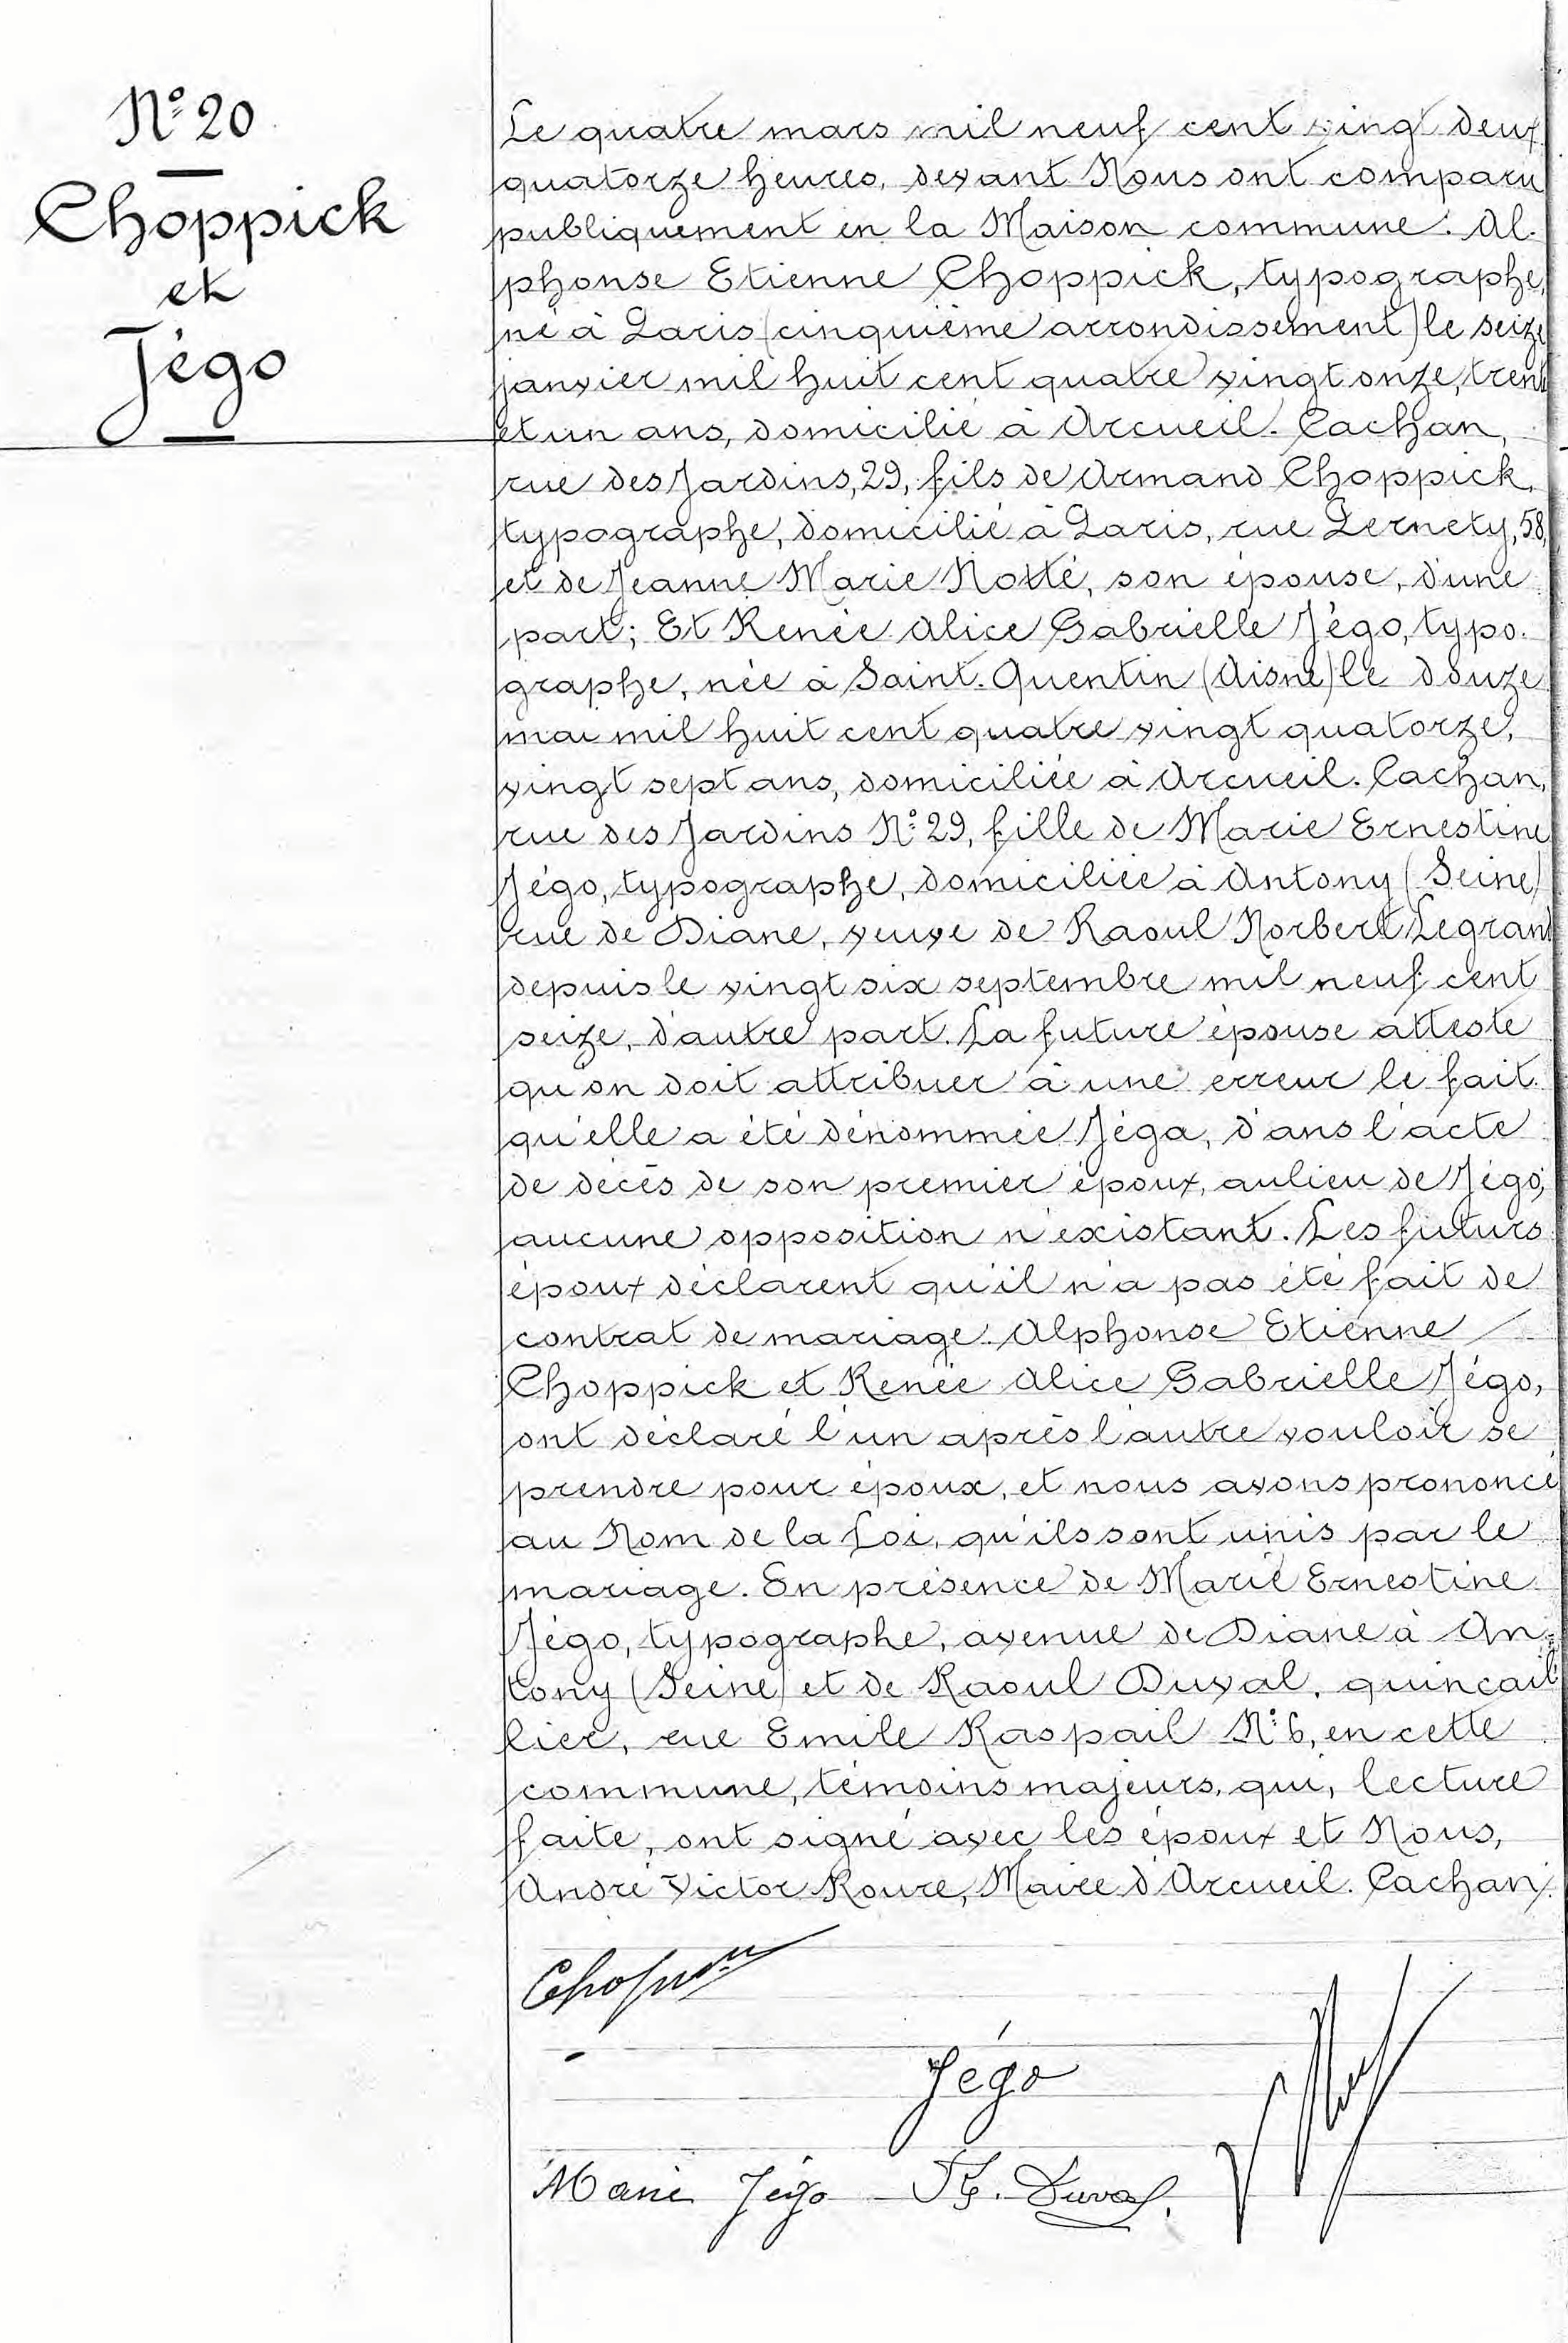 N° 20
Choppick
et
Jégo
Le quatre mars mil neuf cent vingt deux
quatorze heures, devant Nous ont comparu
publiquement en la Maison commune: Al-
phonse Etienne Choppick, typographe,
né à Paris (cinquième arrondissement) le seize
janvier mil huit cent quatre vingt onze, trente
et un ans, domicilié à Arcueil-Cachan,
rue des Jardins, 29, fils de Armand Choppick,
typographe, domicilié à Paris, rue Pernety, 58,
et de Jeanne Marie Notté, son épouse, d'une
part; Et Renée Alice Gabrielle Jégo, typo-
graphe, née à Saint-Quentin (Aisne) le douze
mai mil huit cent quatre vingt quatorze,
vingt sept ans, domiciliée à Arcueil-Cachan,
rue des Jardins N° 29, fille de Marie Ernestine
Jégo, typographe, domiciliée à Antony (Seine)
rue de Diane, veuve de Raoul Norbert Legrand
depuis le vingt six septembre mil neuf cent
seize, d'autre part. La future épouse atteste
qu'on doit attribuer à une erreur le fait
qu'elle a été dénommée Jéga, dans l'acte
de décès de son premier époux, au lieu de Jégo;
aucune opposition n'existant. Les futurs
époux déclarent qu'il n'a pas été fait de
contrat de mariage. Alphonse Etienne
Choppick et Renée Alice Gabrielle Jégo,
ont déclaré l'un après l'autre vouloir se
prendre pour époux, et nous avons prononcé
au Nom de la Loi, qu'ils sont unis par le
mariage. En présence de Marie Ernestine
Jégo, typographe, avenue de Diane à An-
tony (Seine) et de Raoul Duval, quincail-
lier, rue Emile Raspail N° 6, en cette
commune, témoins majeurs, qui, lecture
faite, ont signé avec les époux et Nous,
André Victor Roure, Maire d'Arcueil-Cachan.
Jégo
Marie Jégo Duval.